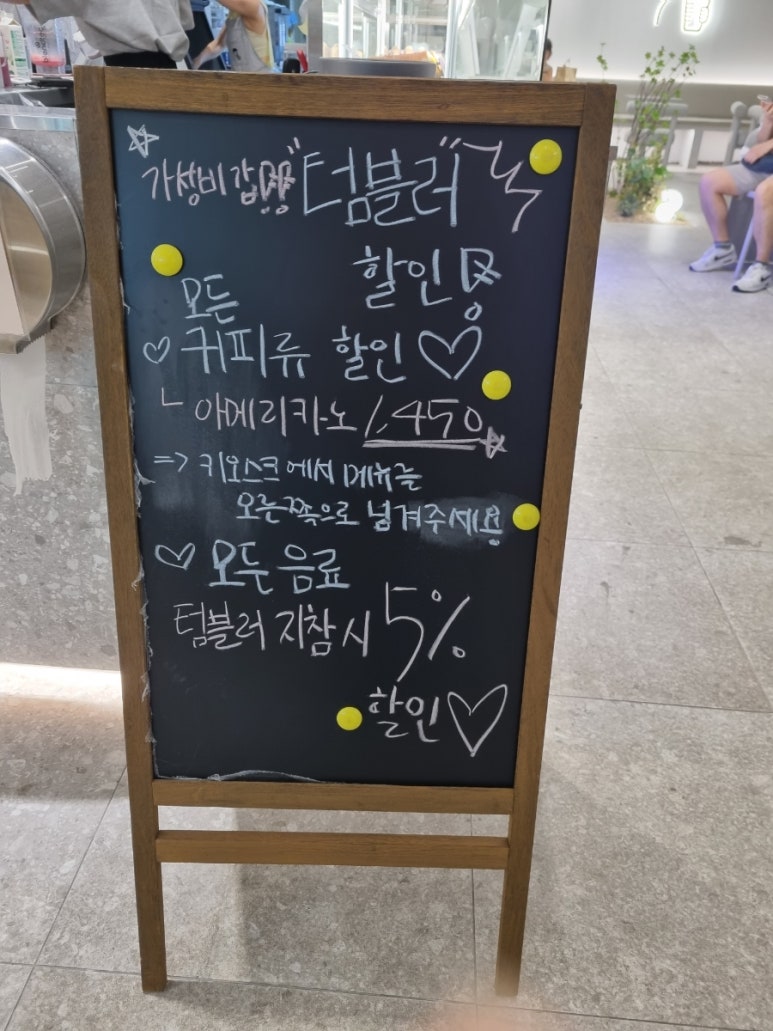 가성비 갑!! "텀블러"
할인!
모든
커피류 할인
ㄴ 아메리카노 1,450
=> 키오스크에서 메뉴를
오른쪽으로 넘겨주세요
모든 음료
텀블러 지참 시 5%
할인